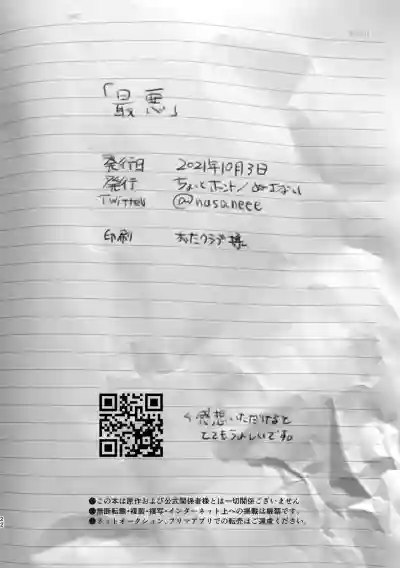 「最悪」
発行日 2021年10月3日
発行 ちょっとホント/
Twitter @nasaneee
印刷 おたクラブ様
感想いただけると
とてもうれしいです。
●この本は原作および公式関係者様とは一切関係ございません
●無断転載・複製・複写・インターネット上への掲載は厳禁です。
●ネットオークション、フリマアプリでの転売はご遠慮ください。